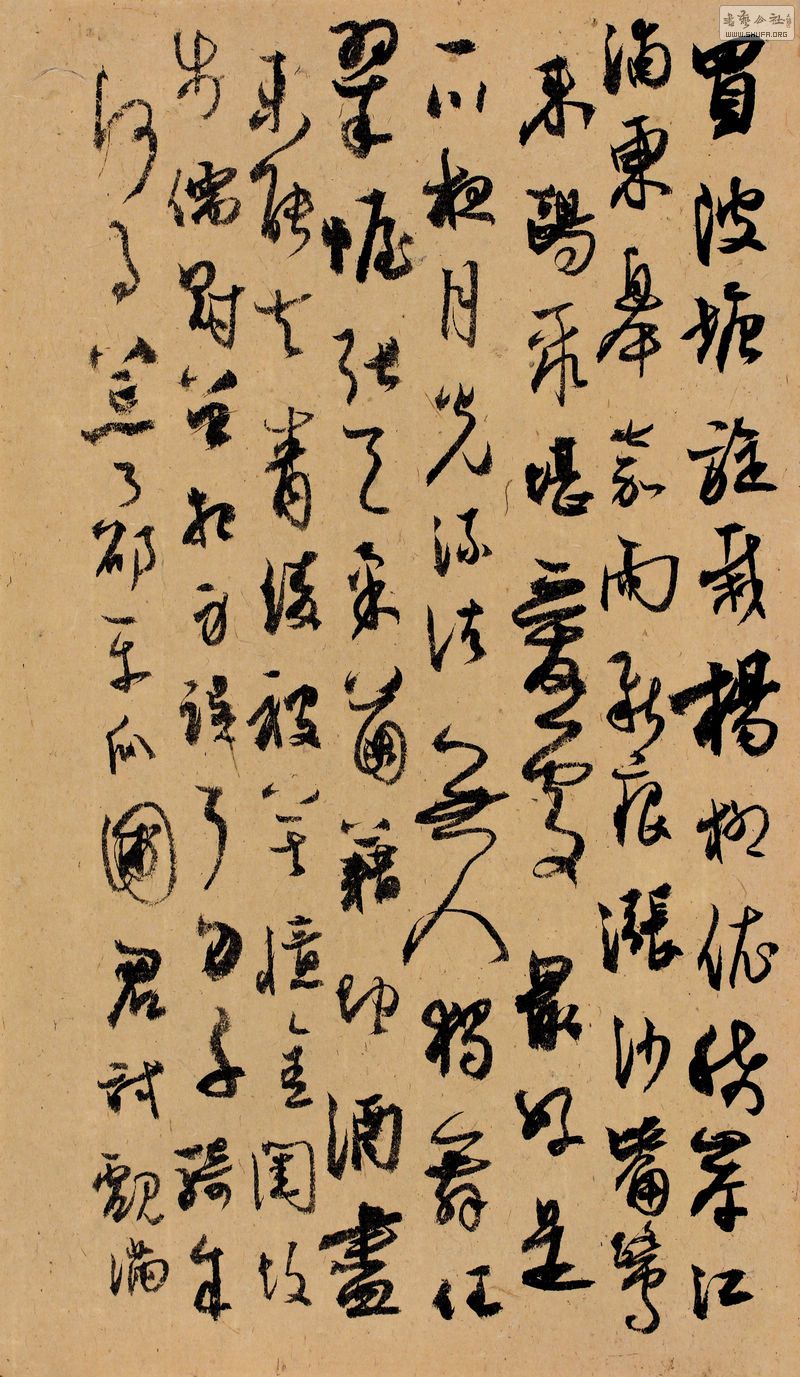 買波塘旋栽楊柳依稀岸江
浦東皋嘉雨新痕漲沙嘴鷺
來鷗聚堪愛處最好是
一川夜月光流渚無人獨舞任
翠幄張天柔茵藉地酒盡
未能去青綾被莫憶金閨故
步儒冠曾把身誤弓刀千騎成
何事荒了邵平瓜圃君試覷滿
書藝公社
WWW.SHUFA.ORG